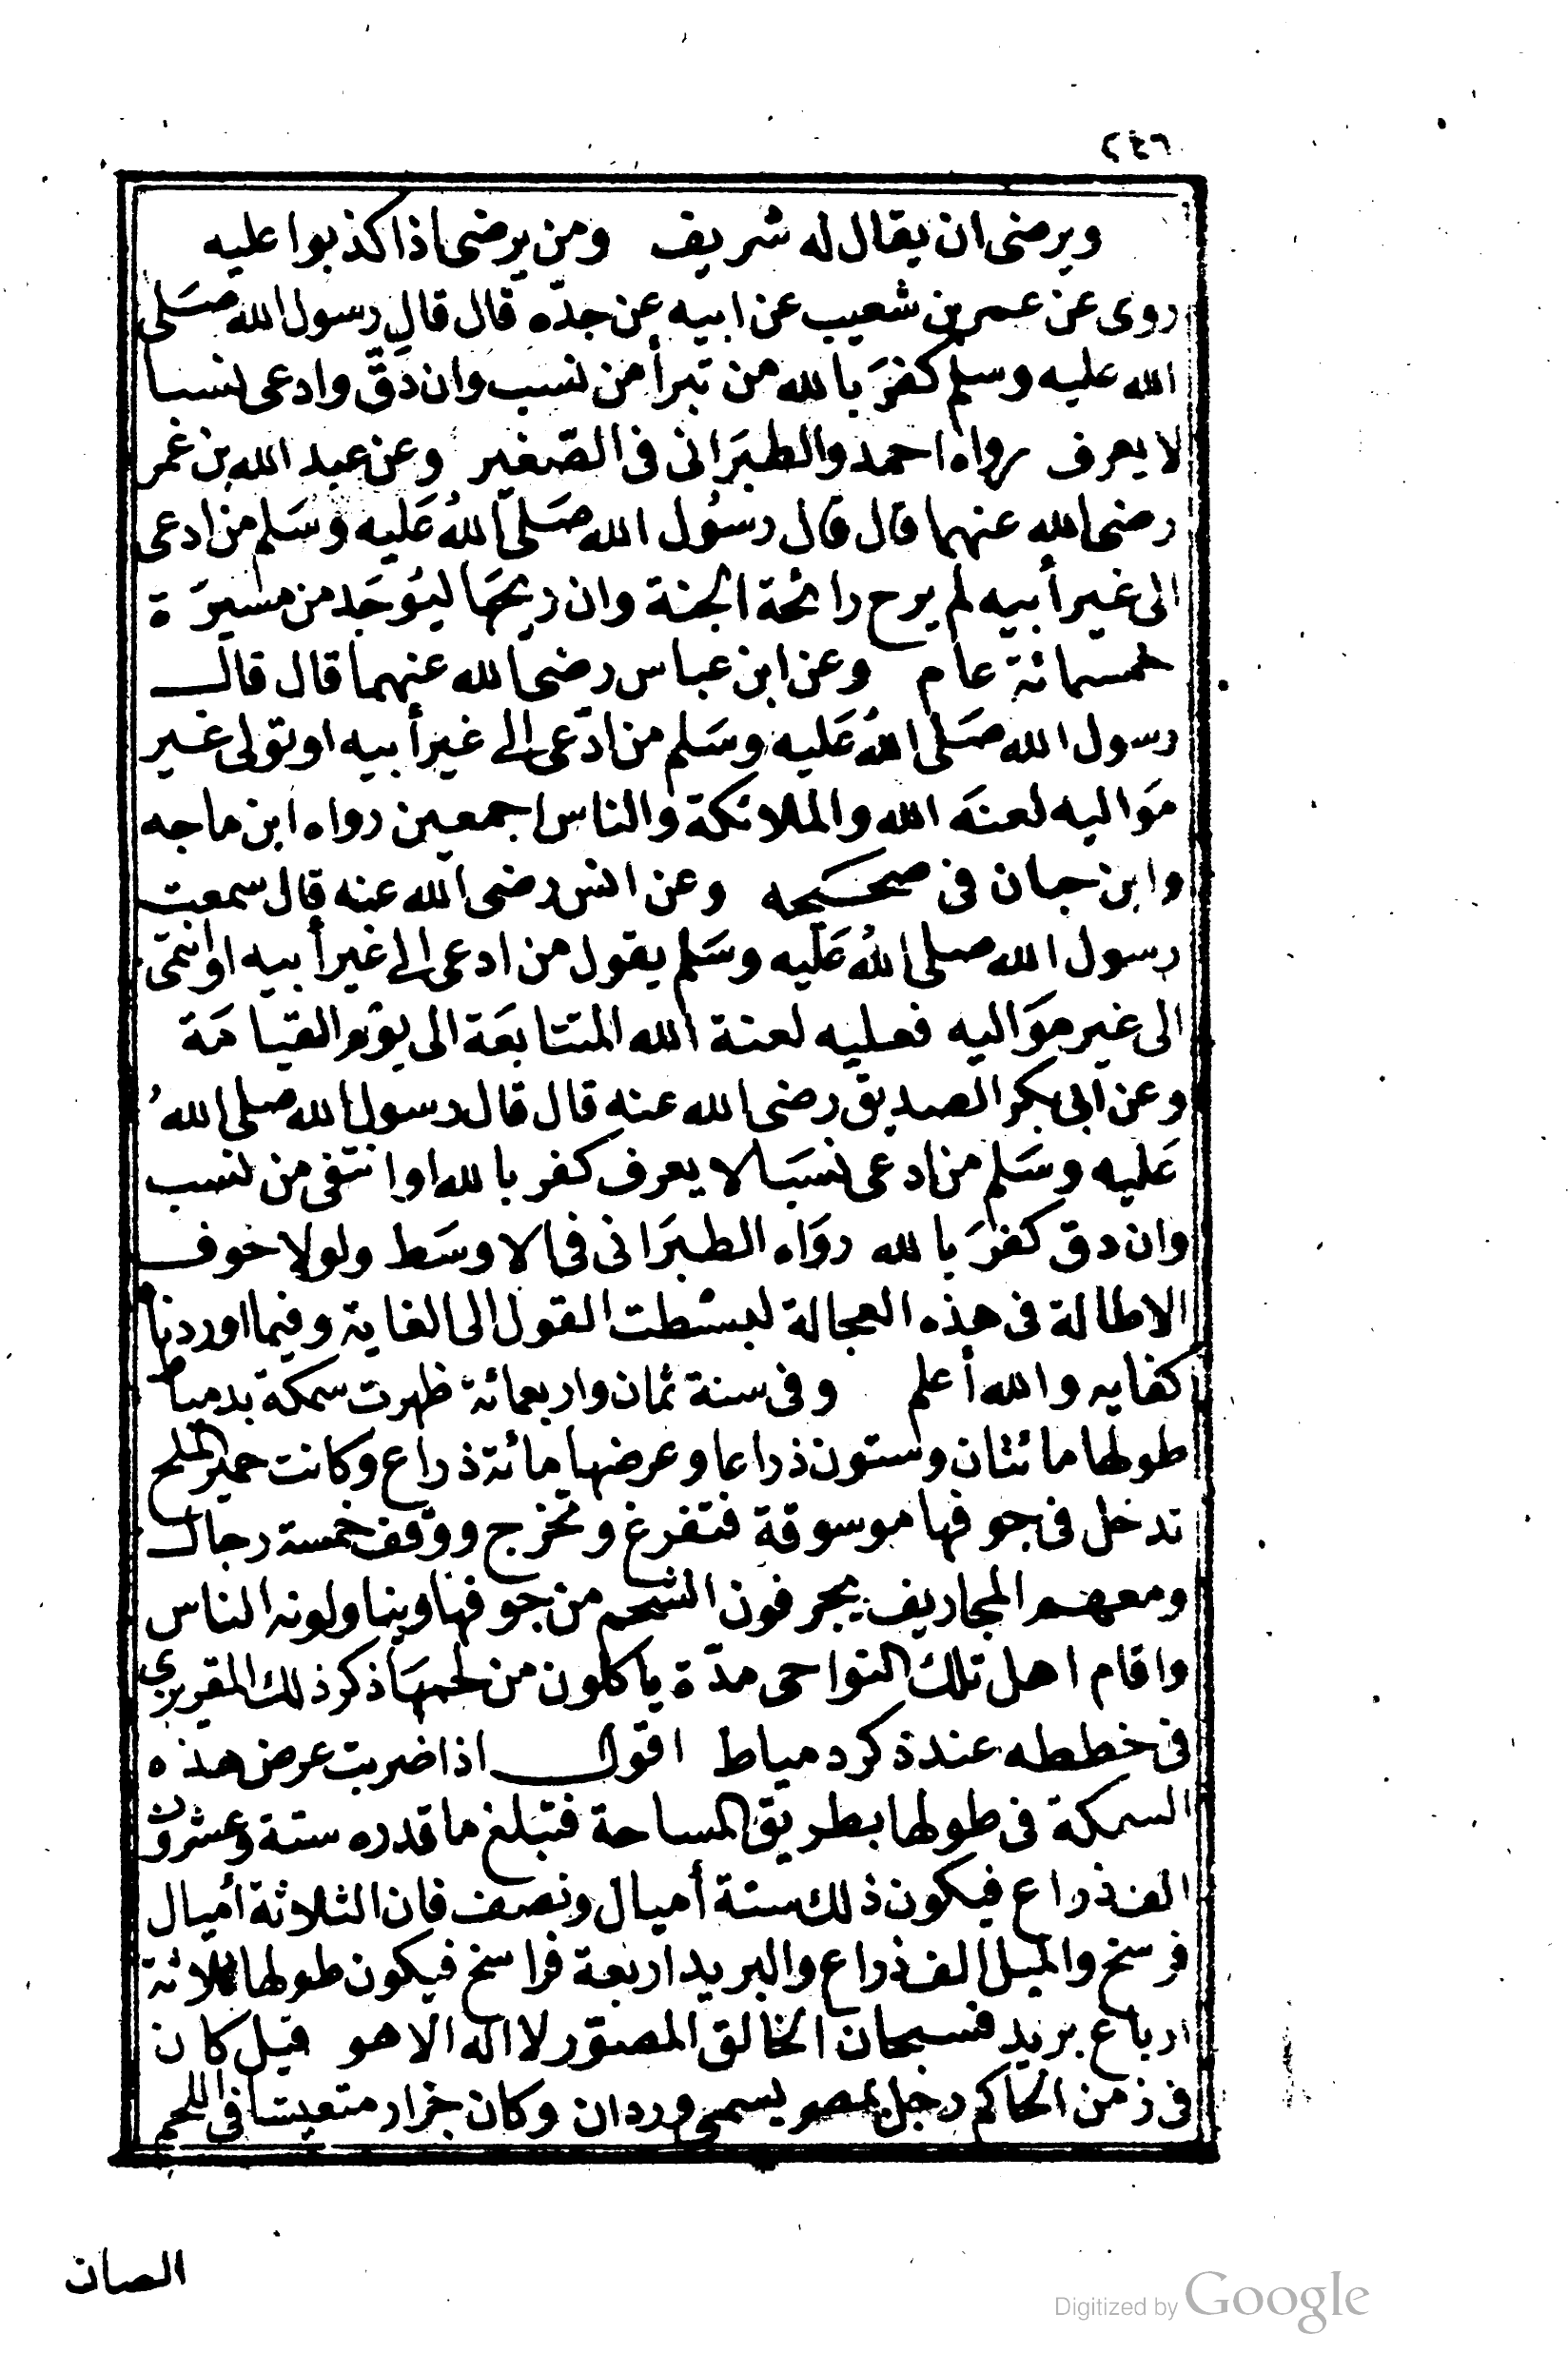 ٢٤٦
ويرضى ان يقال له شريف ومن يرضى اذا كذبوا عليه
روى عن عمر بن شعيب عن ابيه عن جدّه قال قال رسول الله صَلى
الله عليه وسلم كفرَ بالله من تبرأ من نسب وان دقّ وادعى نسبا
لا يعرف رواه احمد والطبَرانى فى الصّغير وعن عبد الله بن عمر
رضى الله عنهما قال قال رسُول الله صَلى اللهُ عَليه وسَلم من ادعى
الى غير أبيه لم يرح رائحة الجنة وان ريحَها ليُوجَد من مسيرَة
خمسمائة عام وعن ابن عباس رضى الله عنهما قال قال
رسول الله صَلى اللهُ عَليه وسَلم من ادّعى الى غير أبيه او تولى غير
مَواليه لعنَه الله والملائكة والناس اجمعين رواه ابن ماجه
وابن حبان فى صحيحه وعن انس رضى الله عنه قال سمعت
رسول الله صلى اللهُ عَليه وسَلم يقول من ادعى الى غير أبيه او انتمى
الى غير مَواليه فعليه لعنة الله المتتابعَة الى يوْم القيامَة
وعن ابى بكر الصديق رضى الله عنه قال قال رسول الله صلى اللهُ
عَليه وسَلم من ادعى نسَبا لا يعرف كفر بالله او انتفى من نسب
وان دق كفرَ بالله روَاه الطبَرانى فى الاوسَط ولولا خوف
الاطالة فى هذه العجالة لبسطت القول الى الغاية وفيما اوردناه
كفايه والله أعلم وفى سنة ثمان واربعمائة ظهرت سمكة بدمياط
طولها مائتان وستون ذراعا وعرضها مائة ذراع وكانت حمير الملح
تدخل فى جوفها موسوقة فتفرغ وتخرج ووقف خمسة رجال
ومعهم المجاريف يجرفون الشحم من جوفها ويناولونه الناس
واقام اهل تلك النواحى مدّة ياكلون من لحمهَا ذكر ذلك المقريزي
فى خططه عند ذكر دمياط اقول اذا ضربت عرض هذه
السمكة فى طولها بطريق المساحة فتبلغ ما قدره ستة وعشرون
الف ذراع فيكون ذلك ستة أميال ونصف فان الثلاثة أميال
فرسخ والميل الف ذراع والبريد اربعة فراسخ فيكون طولها ثلاثة
ارباع بريد فسبحان الخالق المصوّر لا اله الا هو قيل كان
فى زمن الحاكم رجل بمصر يسمى وردان وكان جزار متعيشا فى اللحم
الصان
Digitized by Google